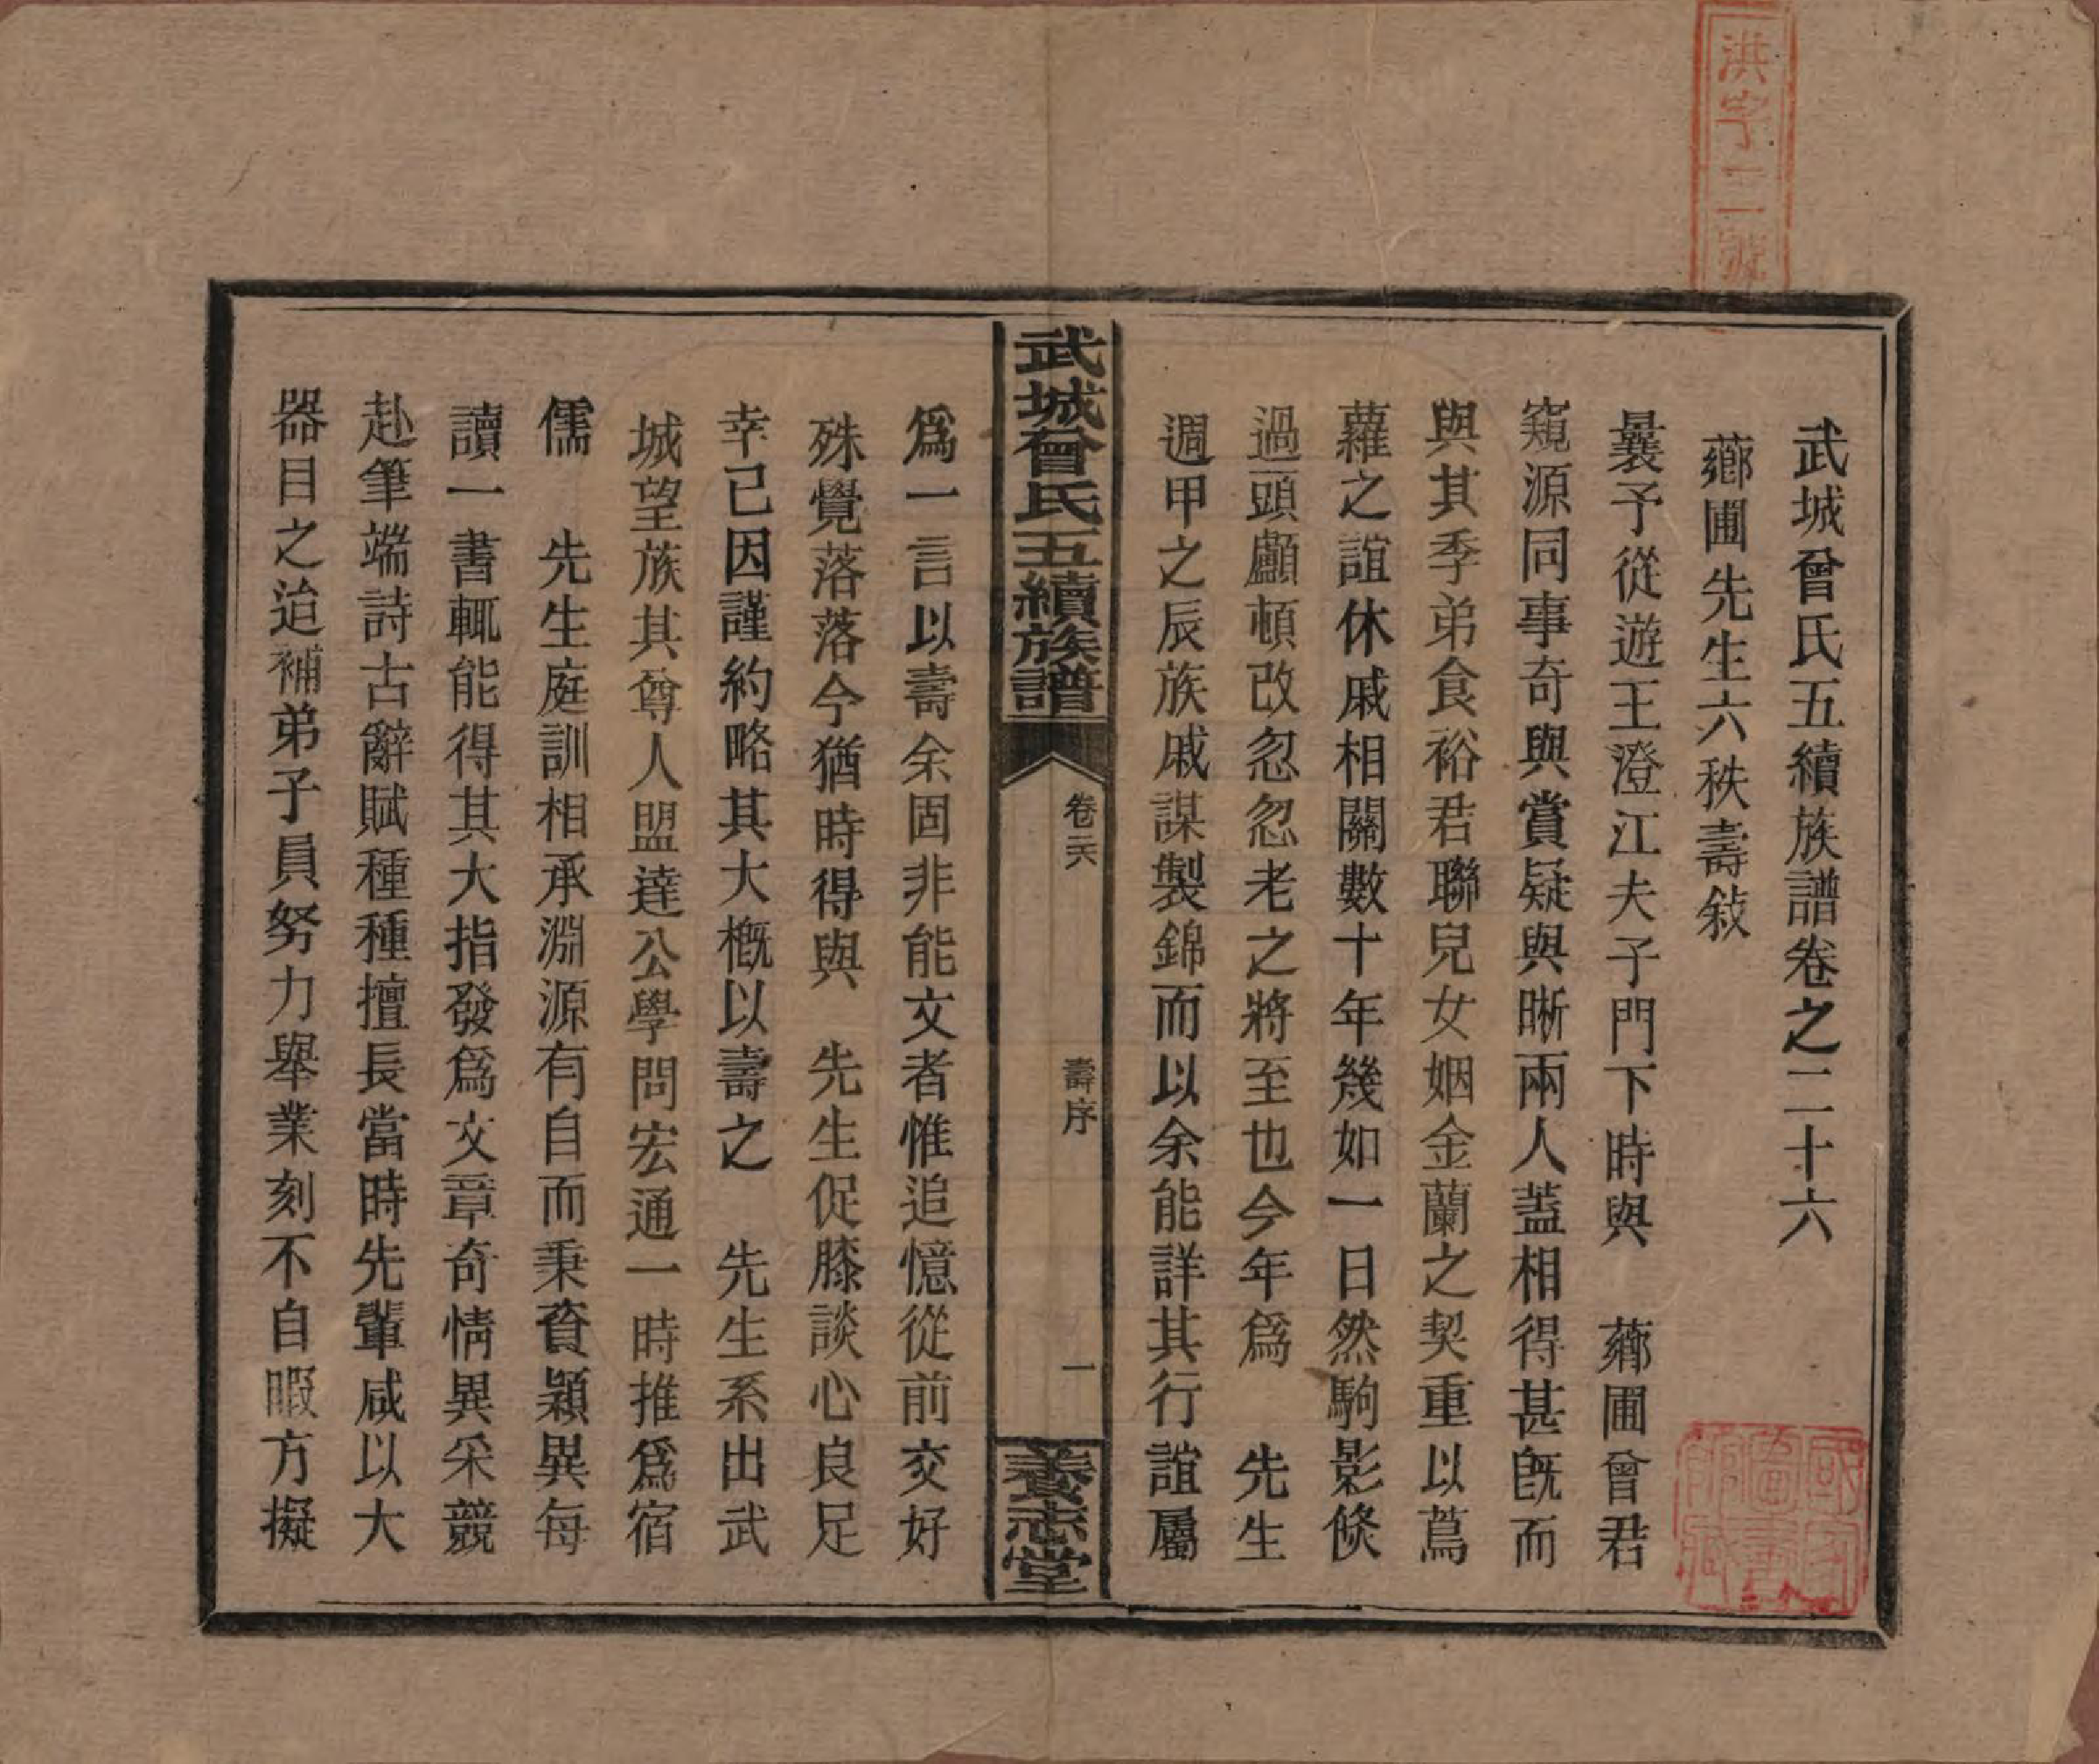 洪字二號
武城曾氏五續族譜卷之二十六
薌圃先生六秩壽敍
曩予從遊王澄江夫子門下時與　薌圃曾君
窺源同事奇與賞疑與晰兩人蓋相得甚旣而
與其季弟食裕君聯兒女姻金蘭之契重以蔦
蘿之誼休戚相關數十年幾如一日然駒影倐
過頭顱頓改忽忽老之將至也今年爲　先生
週甲之辰族戚謀製錦而以余能詳其行誼屬
武城曾氏五續族譜
卷二六
壽序
一
養志堂
爲一言以壽余固非能文者惟追憶從前交好
殊覺落落今猶時得與　先生促膝談心良足
幸已因謹約略其大概以壽之　先生系出武
城望族其尊人盟達公學問宏通一時推爲宿
儒　先生庭訓相承淵源有自而秉資穎異每
讀一書輒能得其大指發爲文章奇情異采競
赴筆端詩古辭賦種種擅長當時先輩咸以大
器目之迨補弟子員努力舉業刻不自暇方擬